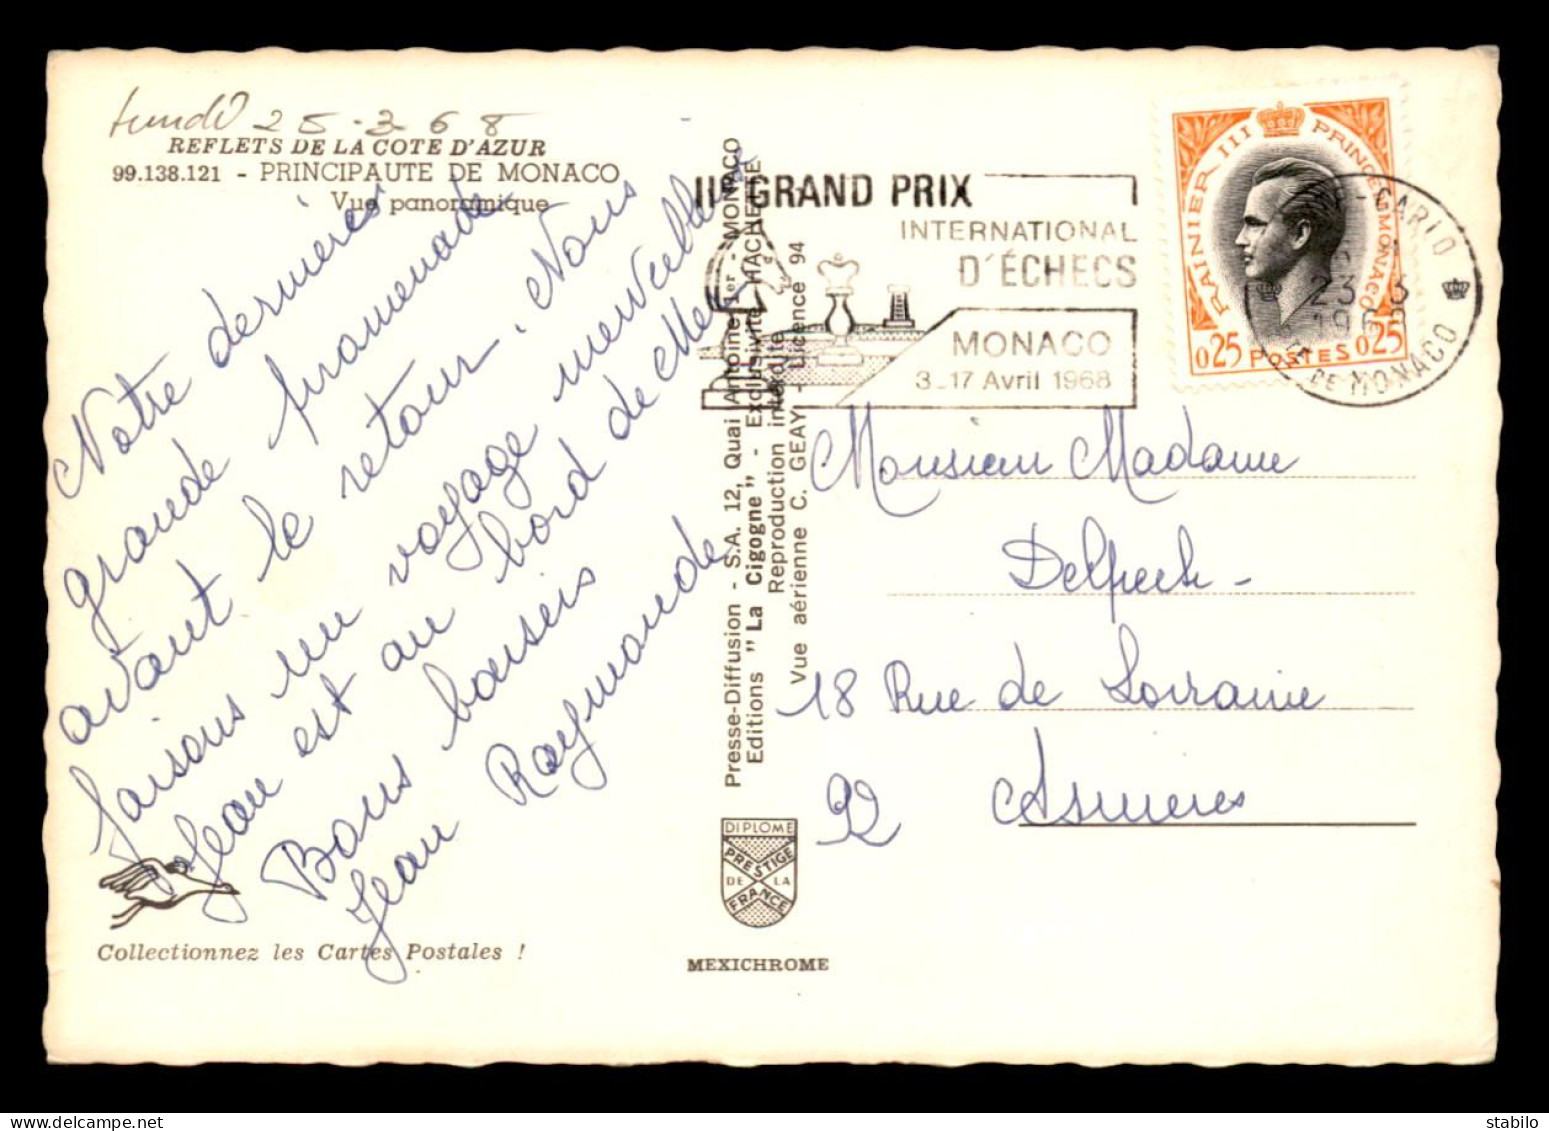 lundi 25-3-68
REFLETS DE LA COTE D'AZUR
99.138.121 - PRINCIPAUTE DE MONACO
Vue panoramique
Notre dernières
grande promenade
avant le retour. Nous
faisons un voyage merveilleux
Jean est au bord de mer
Bons baisers
Jean Raymonde
Collectionnez les Cartes Postales !
Presse-Diffusion - S.A. 12, Quai Antoine 1er - MONACO
Editions "La Cigogne" - Exclusivité HACHETTE
Reproduction interdite
Vue aérienne C. GEAY - Licence 94
DIPLOME
PRESTIGE
DE LA
FRANCE
MEXICHROME
II GRAND PRIX
INTERNATIONAL
D'ÉCHECS
MONACO
3_17 Avril 1968
RAINIER III PRINCE DE MONACO
0,25 POSTES 0,25
E-CARLO
23 3
19
DE MONACO
Monsieur Madame
Delpech -
18 Rue de Lorraine
92 Asnieres
delcampe.net
style-cartes